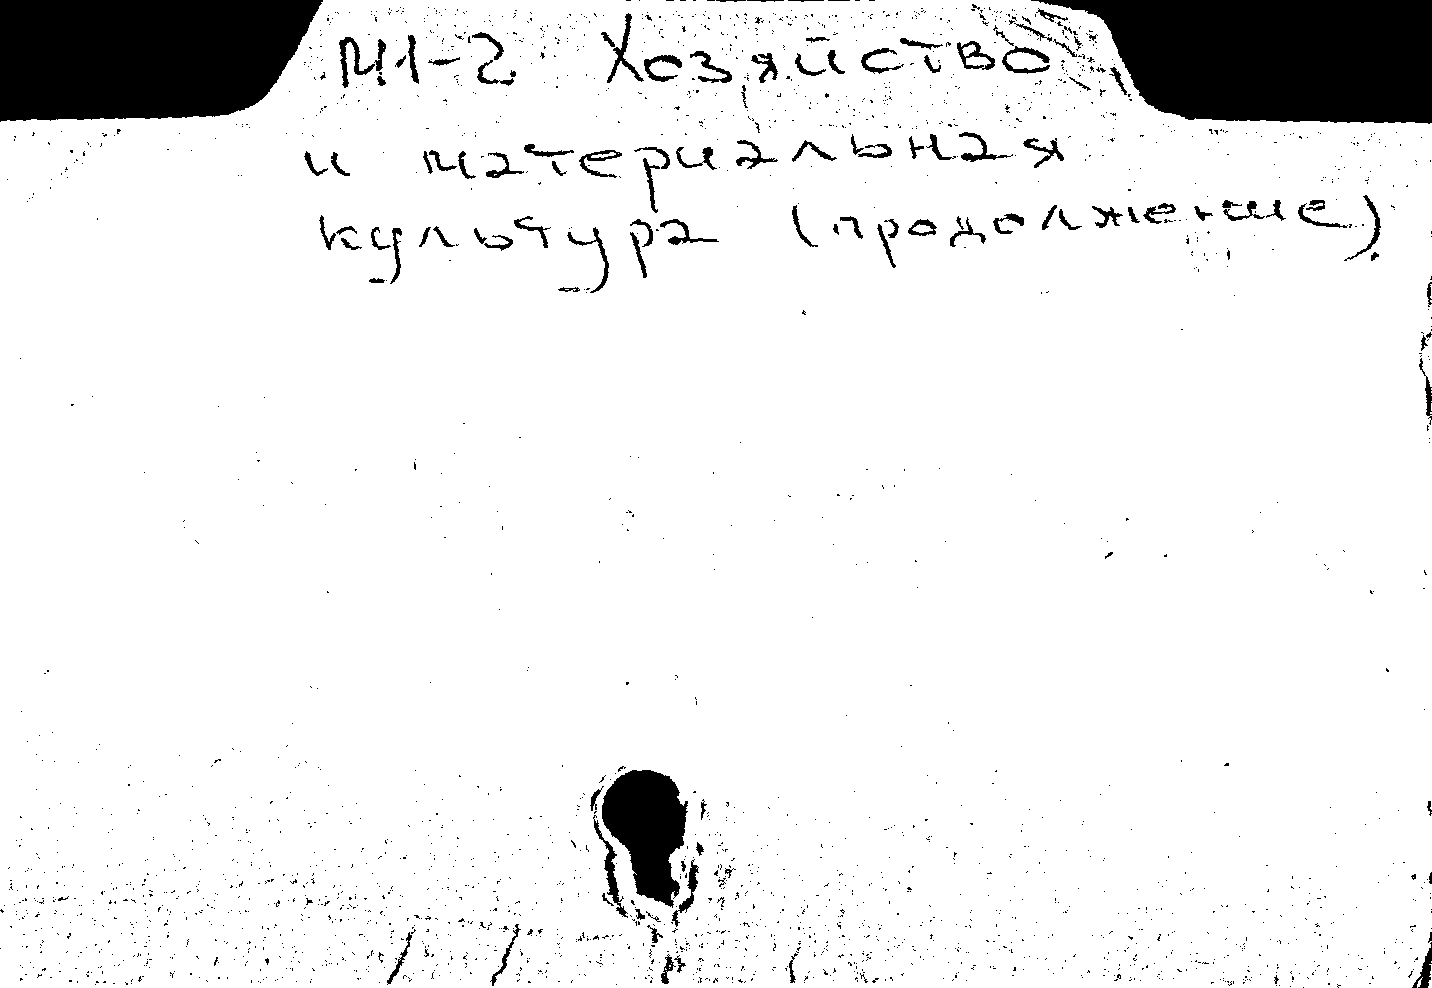 М1-2 Хозяйство
и материальная
культура (продолжение).